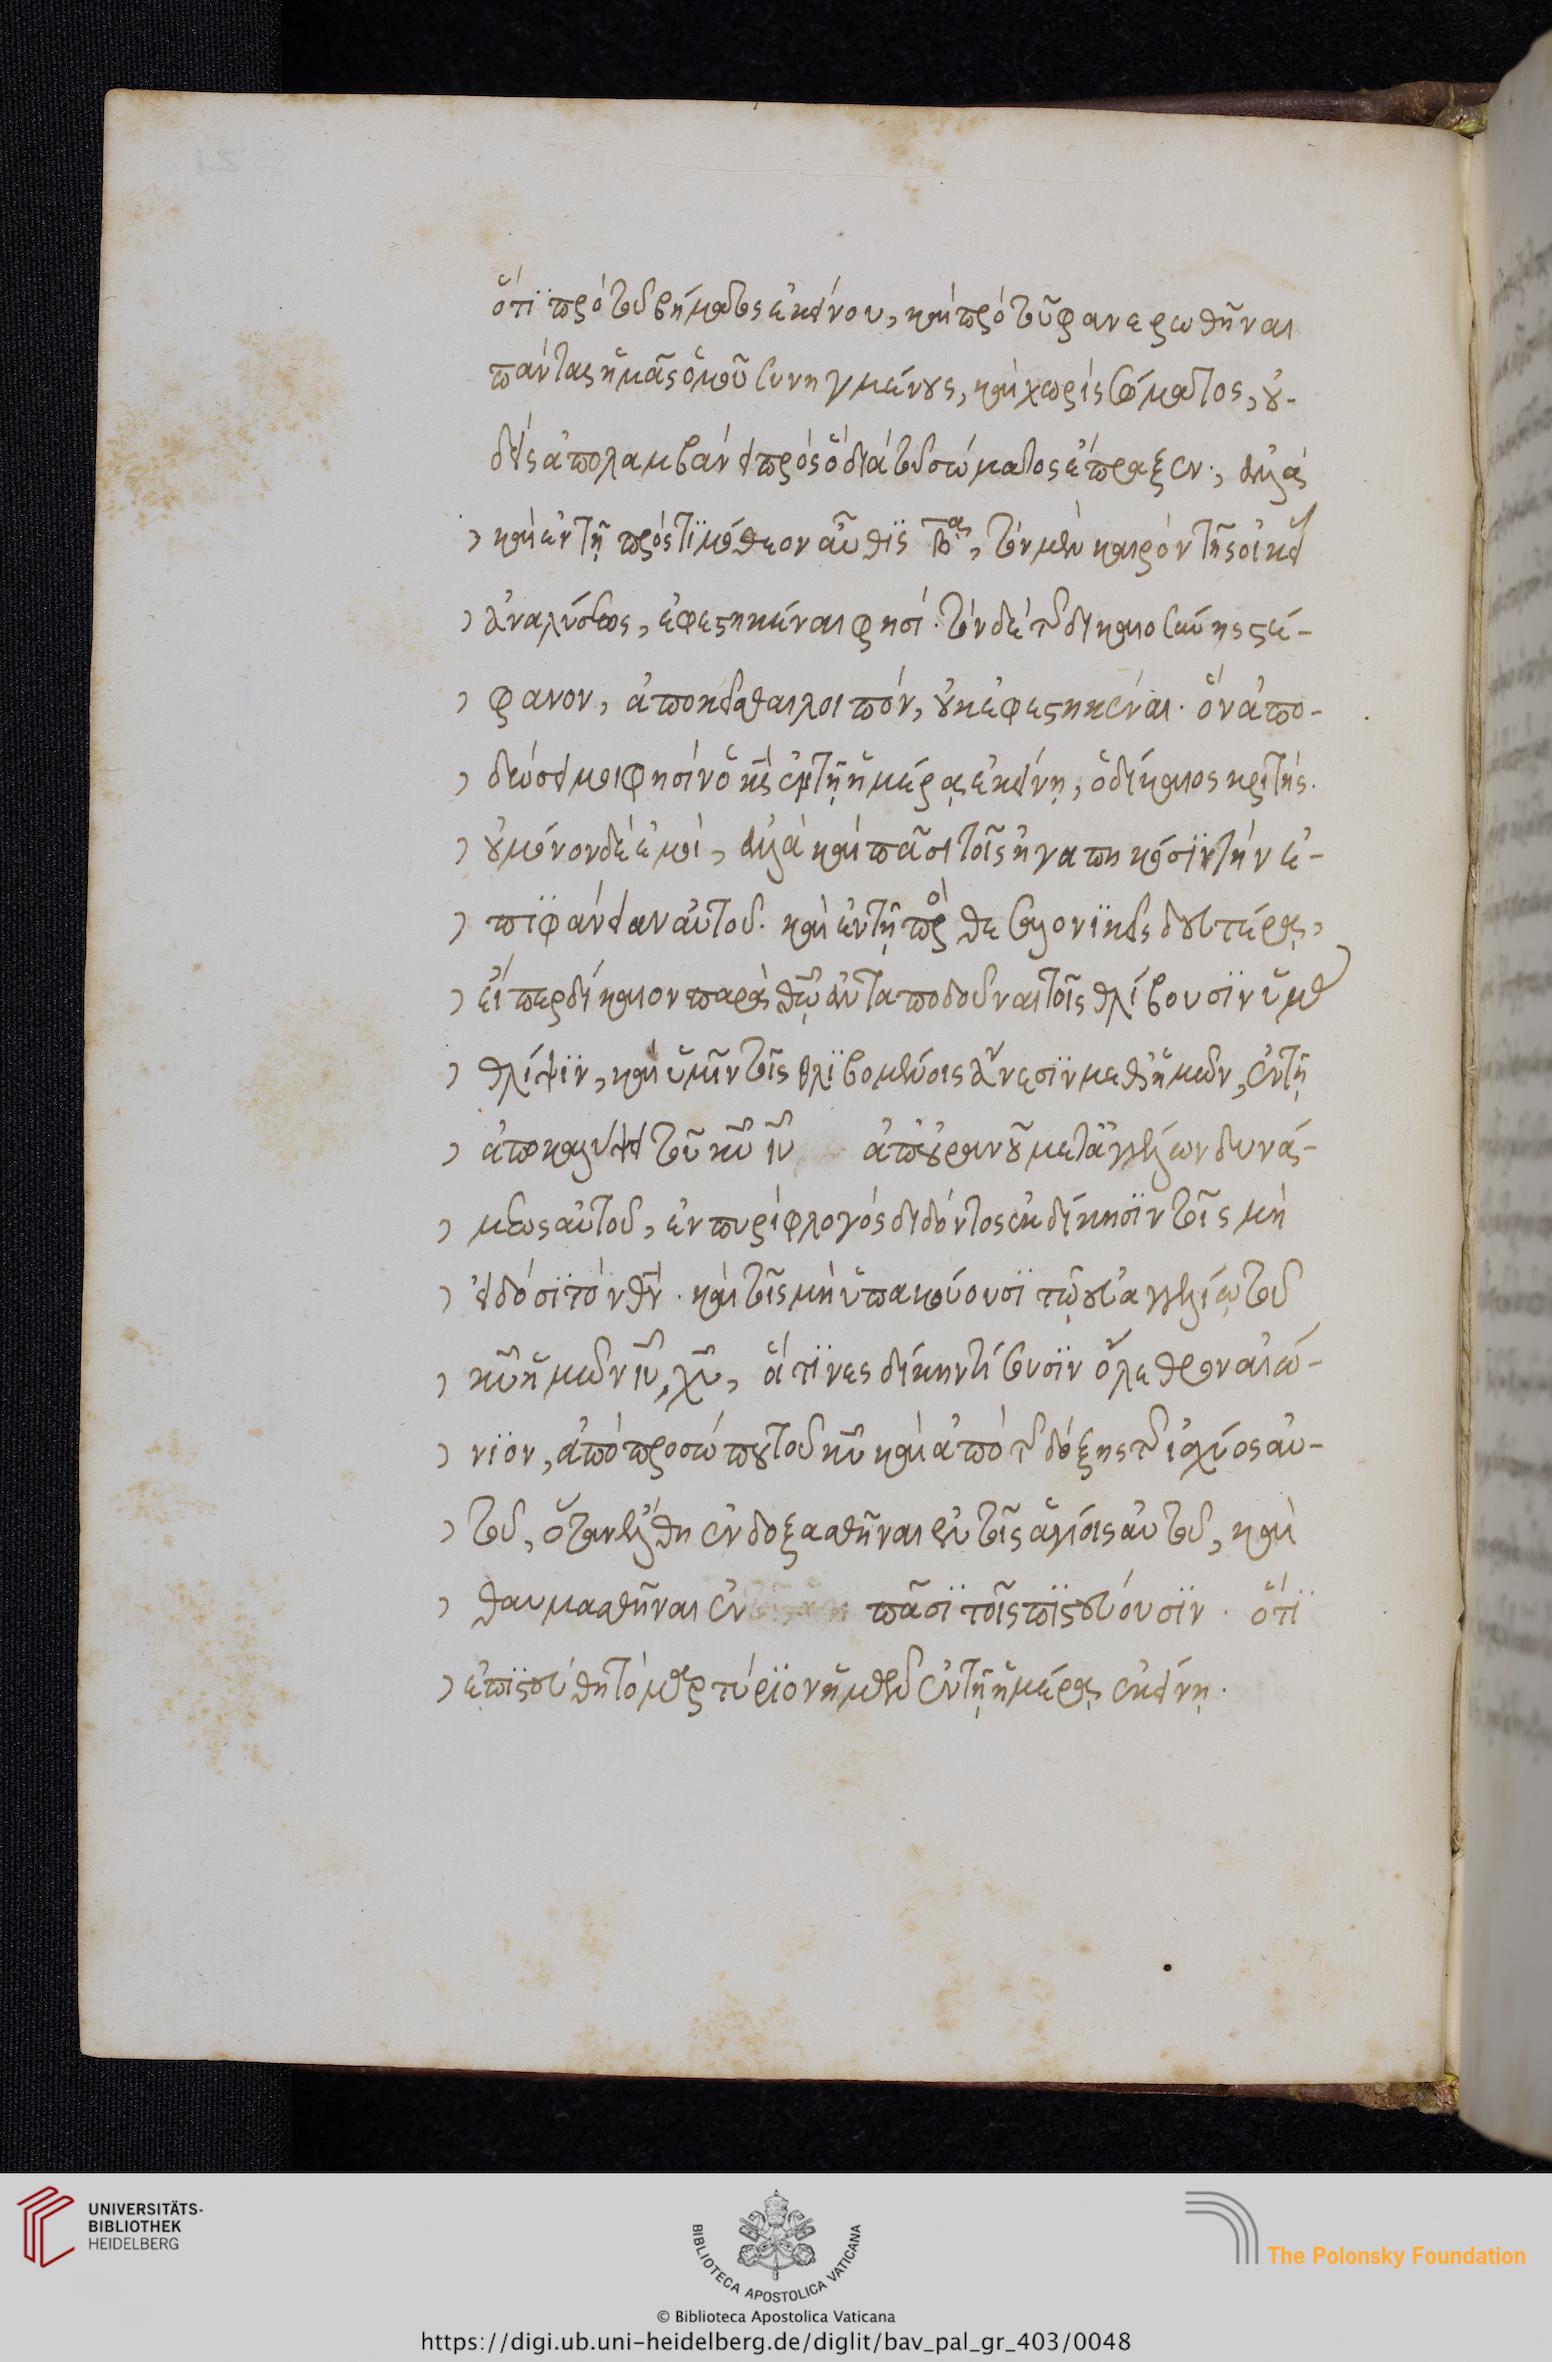 ὅτι πρὸ τοῦ βήματος ἐκείνου, καὶ πρὸ τοῦ φανερωθῆναι
πάντας ἡμᾶς ὁμοῦ συνηγμένους, καὶ χωρὶς σώματος, οὐ-
δεὶς ἀπολαμβάνει πρὸς ὃ διὰ τοῦ σώματος ἔπραξεν·, ἀλλὰ
καὶ ἐν τῇ πρὸς τιμόθεον αὖθις β̅α, τὸν μὲν καιρὸν τῆς οἰκεί
ἀναλύσεως, ἐφεστηκέναι φησί· τὸν δὲ τῆς δικαιοσύνης στέ-
φανον, ἀποκεῖσθαι λοιπόν, οὐκ ἐφεστηκέναι· ὃν ἀπο-
δώσει μοι φησὶν ὁ κ̅ς ἐν τῇ ἡμέρᾳ ἐκείνῃ, ὁ δίκαιος κριτής.
οὐ μόνον δὲ ἐμοί, ἀλλὰ καὶ πᾶσι τοῖς ἠγαπηκόσιν τὴν ἐ-
πιφάνειαν αὐτοῦ. καὶ ἐν τῇ πρὸ θεσσαλονικεῖς δευτέρᾳ,
εἴπερ δίκαιον παρὰ θ̅ῷ ἀνταποδοῦναι τοῖς θλίβουσιν ὑμᾶς
θλίψιν, καὶ ὑμῖν τοῖς θλιβομένοις ἄνεσιν μεθ' ἡμῶν, ἐν τῇ
ἀποκαλύψει τοῦ κ̅υ ι̅υ ἀπ' οὐρανοῦ μετ' ἀγγέλων δυνά-
μεως αὐτοῦ, ἐν πυρὶ φλογὸς διδόντος ἐκδίκησιν τοῖς μὴ
εἰδόσι τὸν θ̅ν· καὶ τοῖς μὴ ὑπακούουσι τῷ εὐαγγελίῳ τοῦ
κ̅υ ἡμῶν ι̅υ, χ̅υ, ἅτινες δίκην τίσουσιν ὄλεθρον αἰώ-
νιον, ἀπὸ προσώπου τοῦ κ̅υ καὶ ἀπὸ τῆς δόξης τῆς ἰσχύος αὐ-
τοῦ, ὅταν ἔλθῃ ἐνδοξασθῆναι ἐν τοῖς ἁγίοις αὐτοῦ, καὶ
θαυμασθῆναι ἐν πᾶσι τοῖς πιστεύουσιν· ὅτι
ἐπιστεύθη τὸ μαρτύριον ἡμῶν ἐν τῇ ἡμέρᾳ ἐκείνῃ.
UNIVERSITÄTS-
BIBLIOTHEK
HEIDELBERG
BIBLIOTECA APOSTOLICA VATICANA
© Biblioteca Apostolica Vaticana
The Polonsky Foundation
https://digi.ub.uni-heidelberg.de/diglit/bav_pal_gr_403/0048